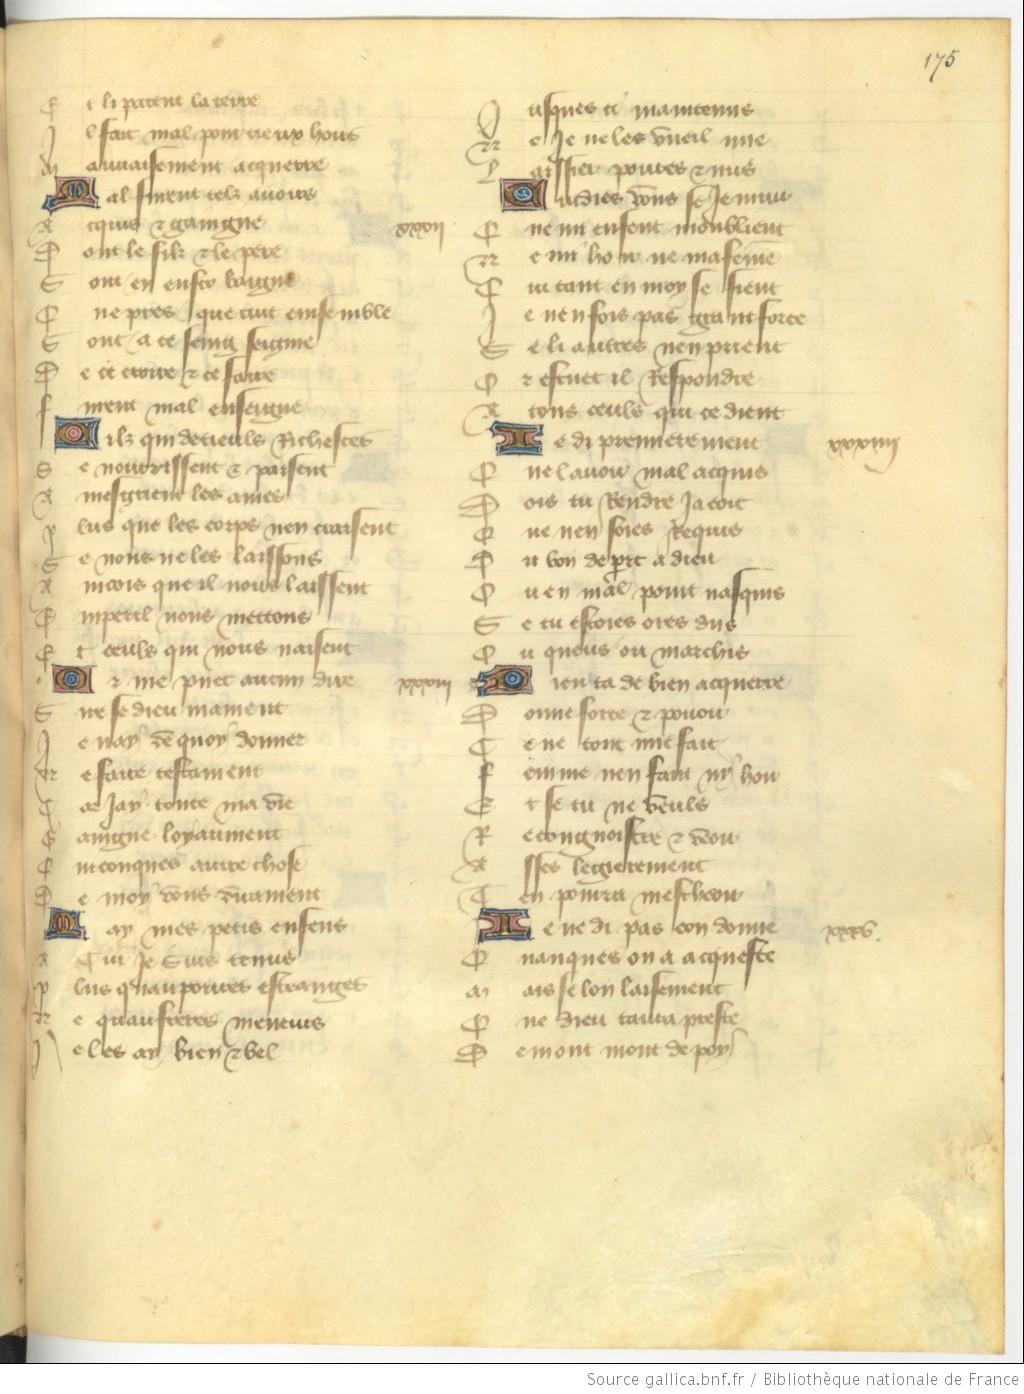 175
Et li prerent la terre
Il fait mal pour vieux hons
Mauvaisement acquerre
Malement telz avoirs
Acquis & gaaigne
xxxii
Dont le filz & le pere
Sont en enfer baigne
Et ne pres que tuit ensemble
Sont a ce seing seigne
De ce croire & ce faire
Furent mal enseigne
Cilz qui de tieuls Richesces
Se nourrissent & paisent
Ames grieuent les ames
Plus que les corps nen aaisent
Se nous ne les laissons
Aincois que il nous laissent
En peril nous mettons
Et ceuls qui nous naisent
Or me puet aucun dire
xxxiii
Sire se dieu mament
Je nay de quoy donner
Ne faire testament
Car Jay toute ma vie
Gaaigne loyaument
Quiconques autre chose
De moy vous vraiment
Jay mes petis enfens
A Cui Je Suis tenus
Plus quau poures estranges
Ne quau freres menuus
Je les ay bien & bel
Jusques ci maintenus
Ne Je ne les vueil mie
Laissier poures & nus
Cuidies vous se Je muir
Que mi enfent moublient
Ne mi hoir ne ma feme
Qui tant en moy se fient
Je nen fois pas grant force
Se li autres nen prient
Or estuet il Respondre
A tous ceuls qui ce dient
Je di premierement
xxxiiii
Que lavoir mal acquis
Dois tu Rendre Jacoit
Que nen soies Requis
Du bon de part a dieu
Ou en mal point nasquis
Se tu estoies ores dus
Ou queus ou marchis
Dieu ta de bien acquerre
Donne force & povoir
Ce ne tont mie fait
Femme nen fant ny hoir
Et se tu ne veuls
Recongnoistre & veoir
Asses legierement
Ten pourra mescheoir
Je ne di pas con donne
xxxv.
Quanques on a acqueste
Mais selon laisement
Que dieu taura preste
De mont mont de poy
Source gallica.bnf.fr / Bibliothèque nationale de France